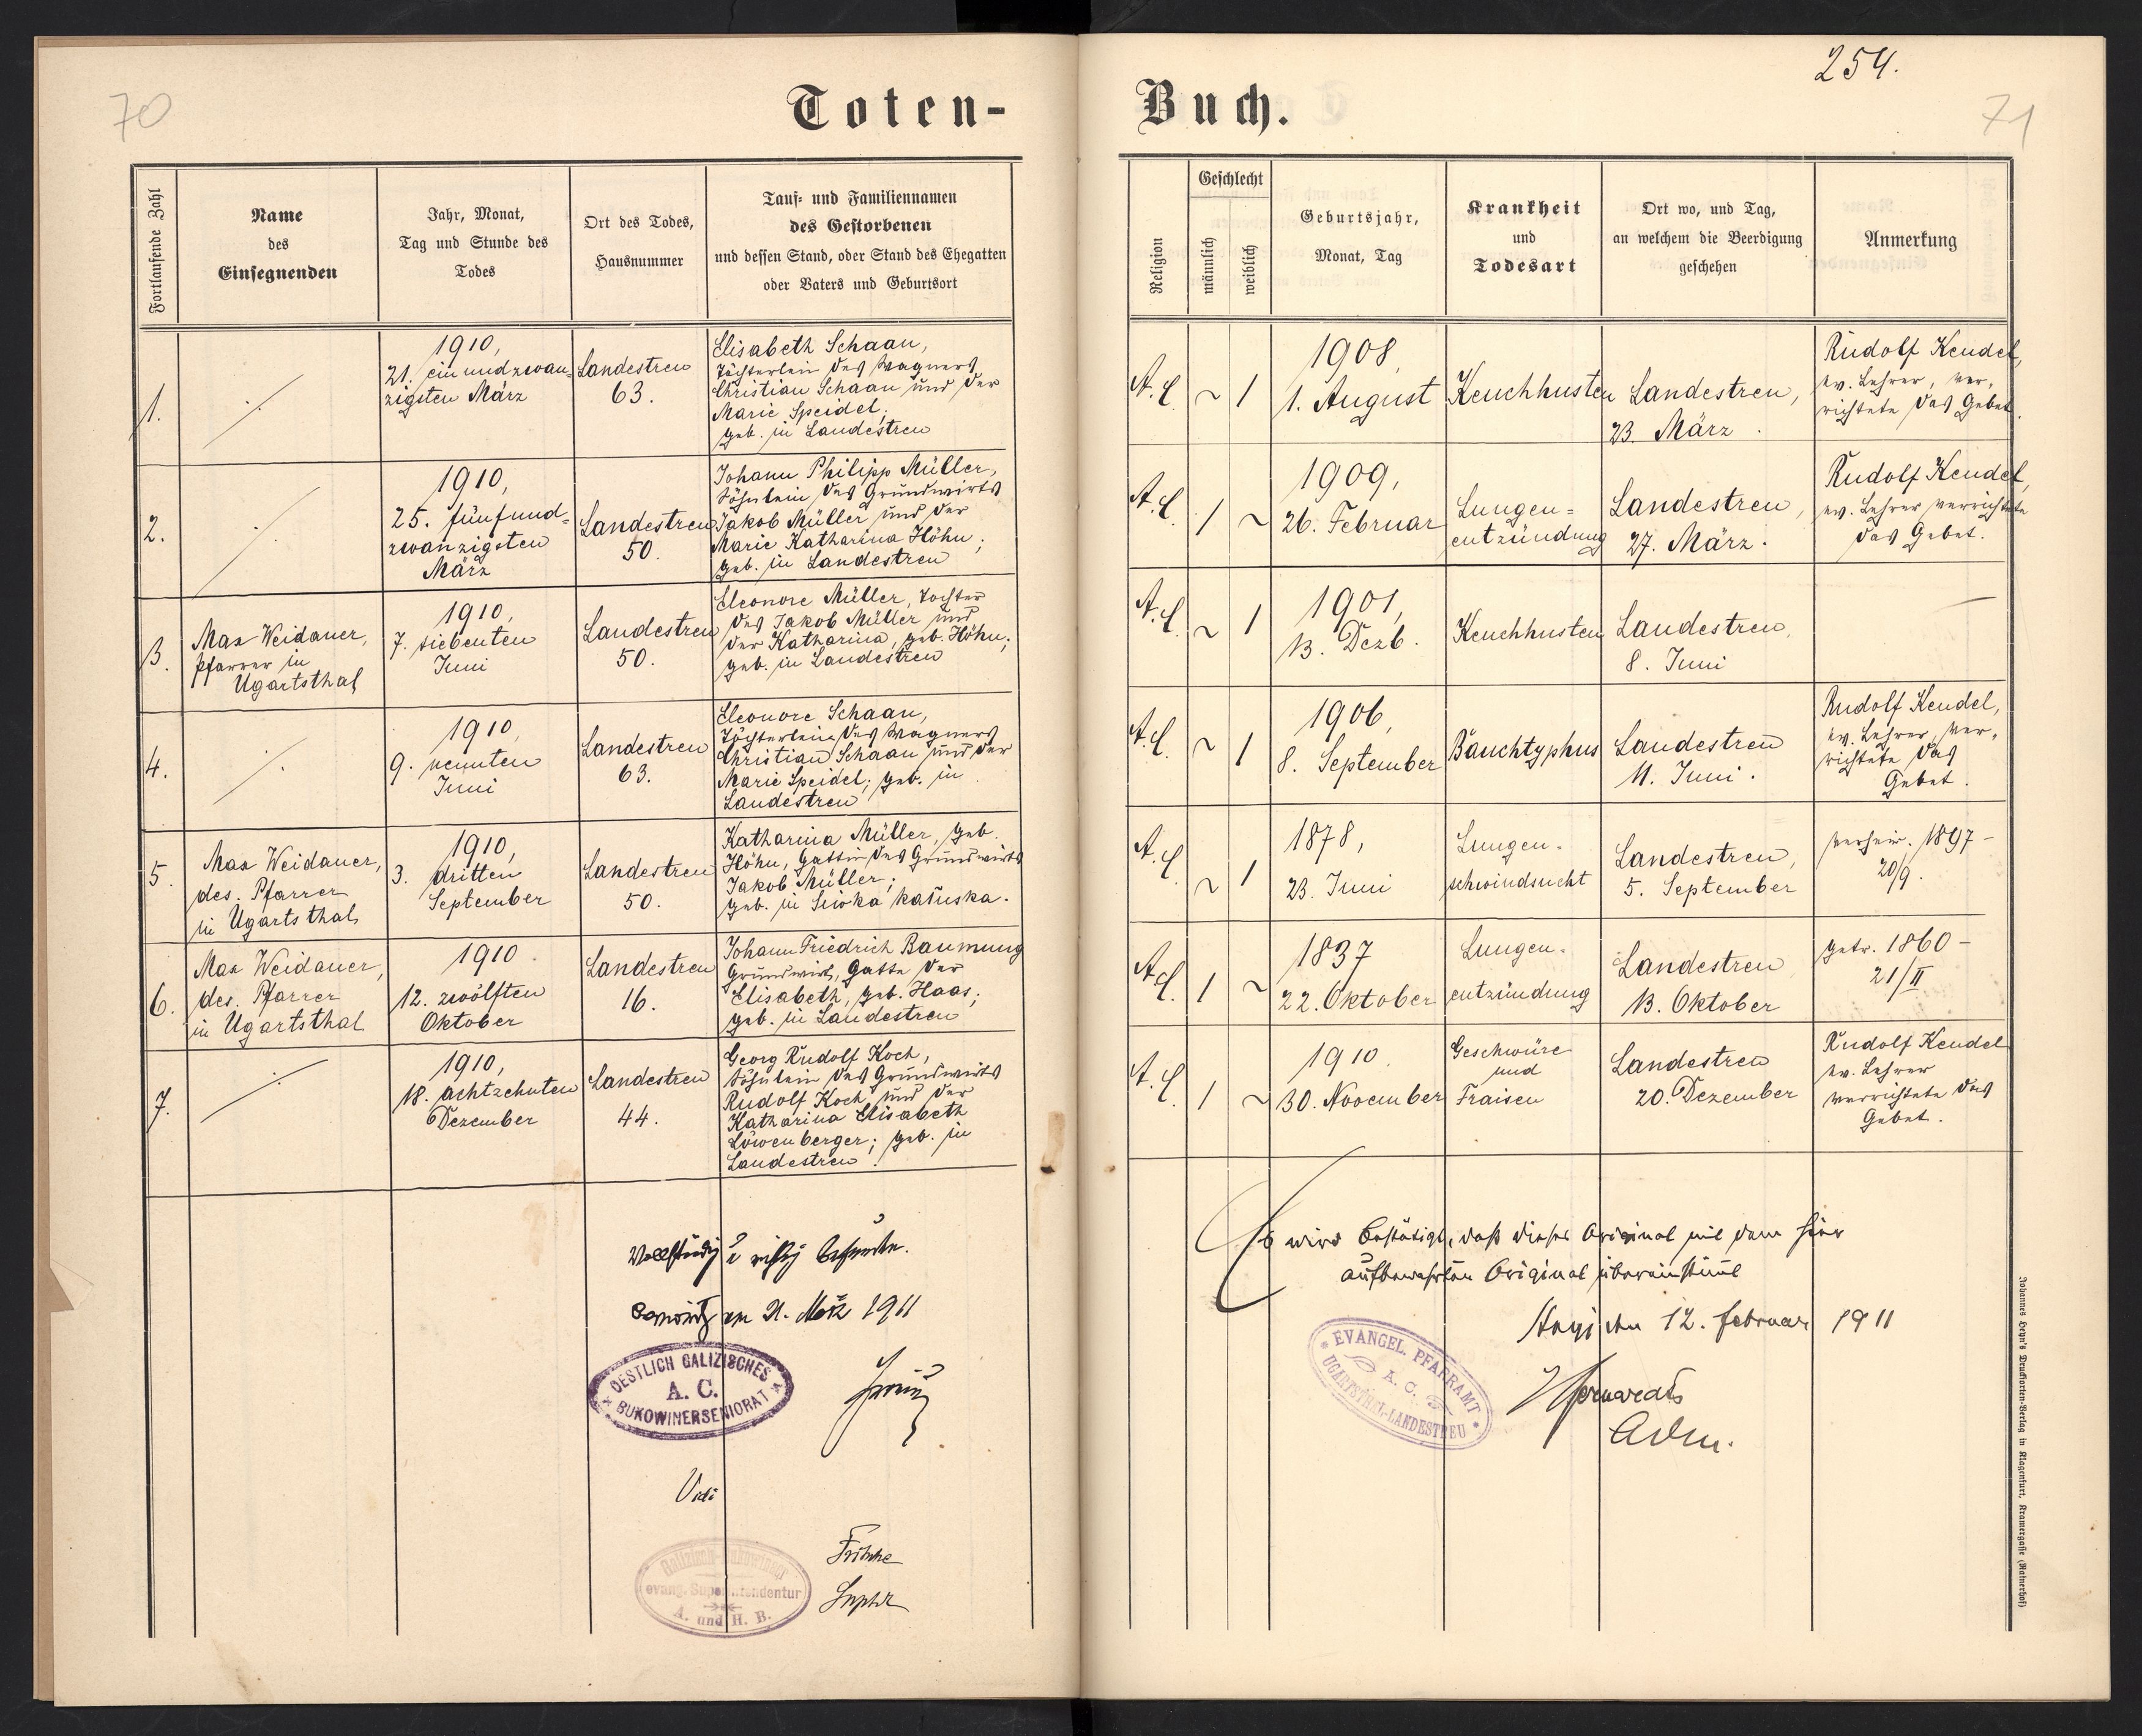 254.
70
71
Toten-
Buch.
Fortlaufende Zahl
Name
des
Einsegnenden
Jahr, Monat,
Tag und Stunde des
Todes
Ort des Todes,
Hausnummer
Tauf- und Familiennamen
des Gestorbenen
und dessen Stand, oder Stand des Ehegatten
oder Vaters und Geburtsort
Religion
Geschlecht
männlich
weiblich
Geburtsjahr,
Monat, Tag
Krankheit
und
Todesart
Ort wo, und Tag,
an welchem die Beerdigung
geschehen
Anmerkung
1.
1910,
21. ein und zwan-
zigsten März
Landestreu
63.
Elisabeth Schaan,
Töchterlein des Wagners
Christian Schaan und der
Marie Speidel;
geb. in Landestreu
A.C.
~
1
1908,
1. August
Keuchhusten
Landestreu,
23. März.
Rudolf Kendel,
ev. Lehrer, ver-
richtete das Gebet.
2.
1910,
25. fünfund-
zwanzigsten
März
Landestreu
50.
Johann Philipp Müller,
Söhnlein des Grundwirts
Jakob Müller und der
Marie Katharina Höhn;
geb. in Landestreu
A.C.
1
~
1909,
26. Februar
Lungen-
entzündung
Landestreu,
27. März.
Rudolf Kendel,
ev. Lehrer verrichtete
das Gebet.
3.
Max Weidauer,
Pfarrer in
Ugartsthal
1910,
7. siebenten
Juni
Landestreu
50.
Eleonore Müller, Tochter
des Jakob Müller und
der Katharina, geb. Höhn;
geb. in Landestreu
A.C.
~
1
1901,
13. Dezb.
Keuchhusten
Landestreu,
8. Juni
4.
1910,
9. neunten
Juni
Landestreu
63.
Eleonore Schaan,
Töchterlein des Wagners
Christian Schaan und der
Marie Speidel; geb. in
Landestreu
A.C.
~
1
1906,
8. September
Bauchtyphus
Landestreu
11. Juni.
Rudolf Kendel,
ev. Lehrer, ver-
richtete das
Gebet.
5.
Max Weidauer,
des. Pfarrer
in Ugartsthal
1910,
3. dritten
September
Landestreu
50.
Katharina Müller, geb.
Höhn, Gattin des Grundwirts
Jakob Müller;
geb. in Siwka kałuska.
A.C.
~
1
1878,
23. Juni
Lungen-
schwindsucht
Landestreu,
5. September
verheir. 1897 -
20/9.
6.
Max Weidauer,
des. Pfarrer
in Ugartsthal
1910.
12. zwölften
Oktober
Landestreu
16.
Johann Friedrich Baumung
Grundwirt, Gatte der
Elisabeth, geb. Haas;
geb. in Landestreu
A.C.
1
~
1837
22. Oktober
Lungen-
entzündung
Landestreu
13. Oktober
getr. 1860 -
21/II
7.
1910,
18. achtzehnten
Dezember
Landestreu
44.
Georg Rudolf Koch,
Söhnlein des Grundwirts
Rudolf Koch und der
Katharina Elisabeth
Löwenberger; geb. in
Landestreu.
A.C.
1
~
1910.
30. November
Geschwüre
und
Fraisen
Landestreu
20. Dezember
Rudolf Kendel
ev. Lehrer
verrichtete das
Gebet.
Vollständig u richtig befunden.
Czernowitz am 21. März 1911
OESTLICH GALIZISCHES
A. C.
BUKOWINERSENIORAT
Vidi
Galizisch-Bukowinaer
evang. Superintendentur
A. und H. B.
Fritsche
Suptdt
Es wird bestätigt, daß dieses Original mit dem hier
aufbewahrten Original übereinstimmt
Stryj den 12. Februar 1911
EVANGEL. PFARRAMT
A. C.
UGARTSTHAL-LANDESTREU
Adm.
Johannes Heyn's Drucksorten-Verlag in Klagenfurt, Kramergasse (Rainerhof)